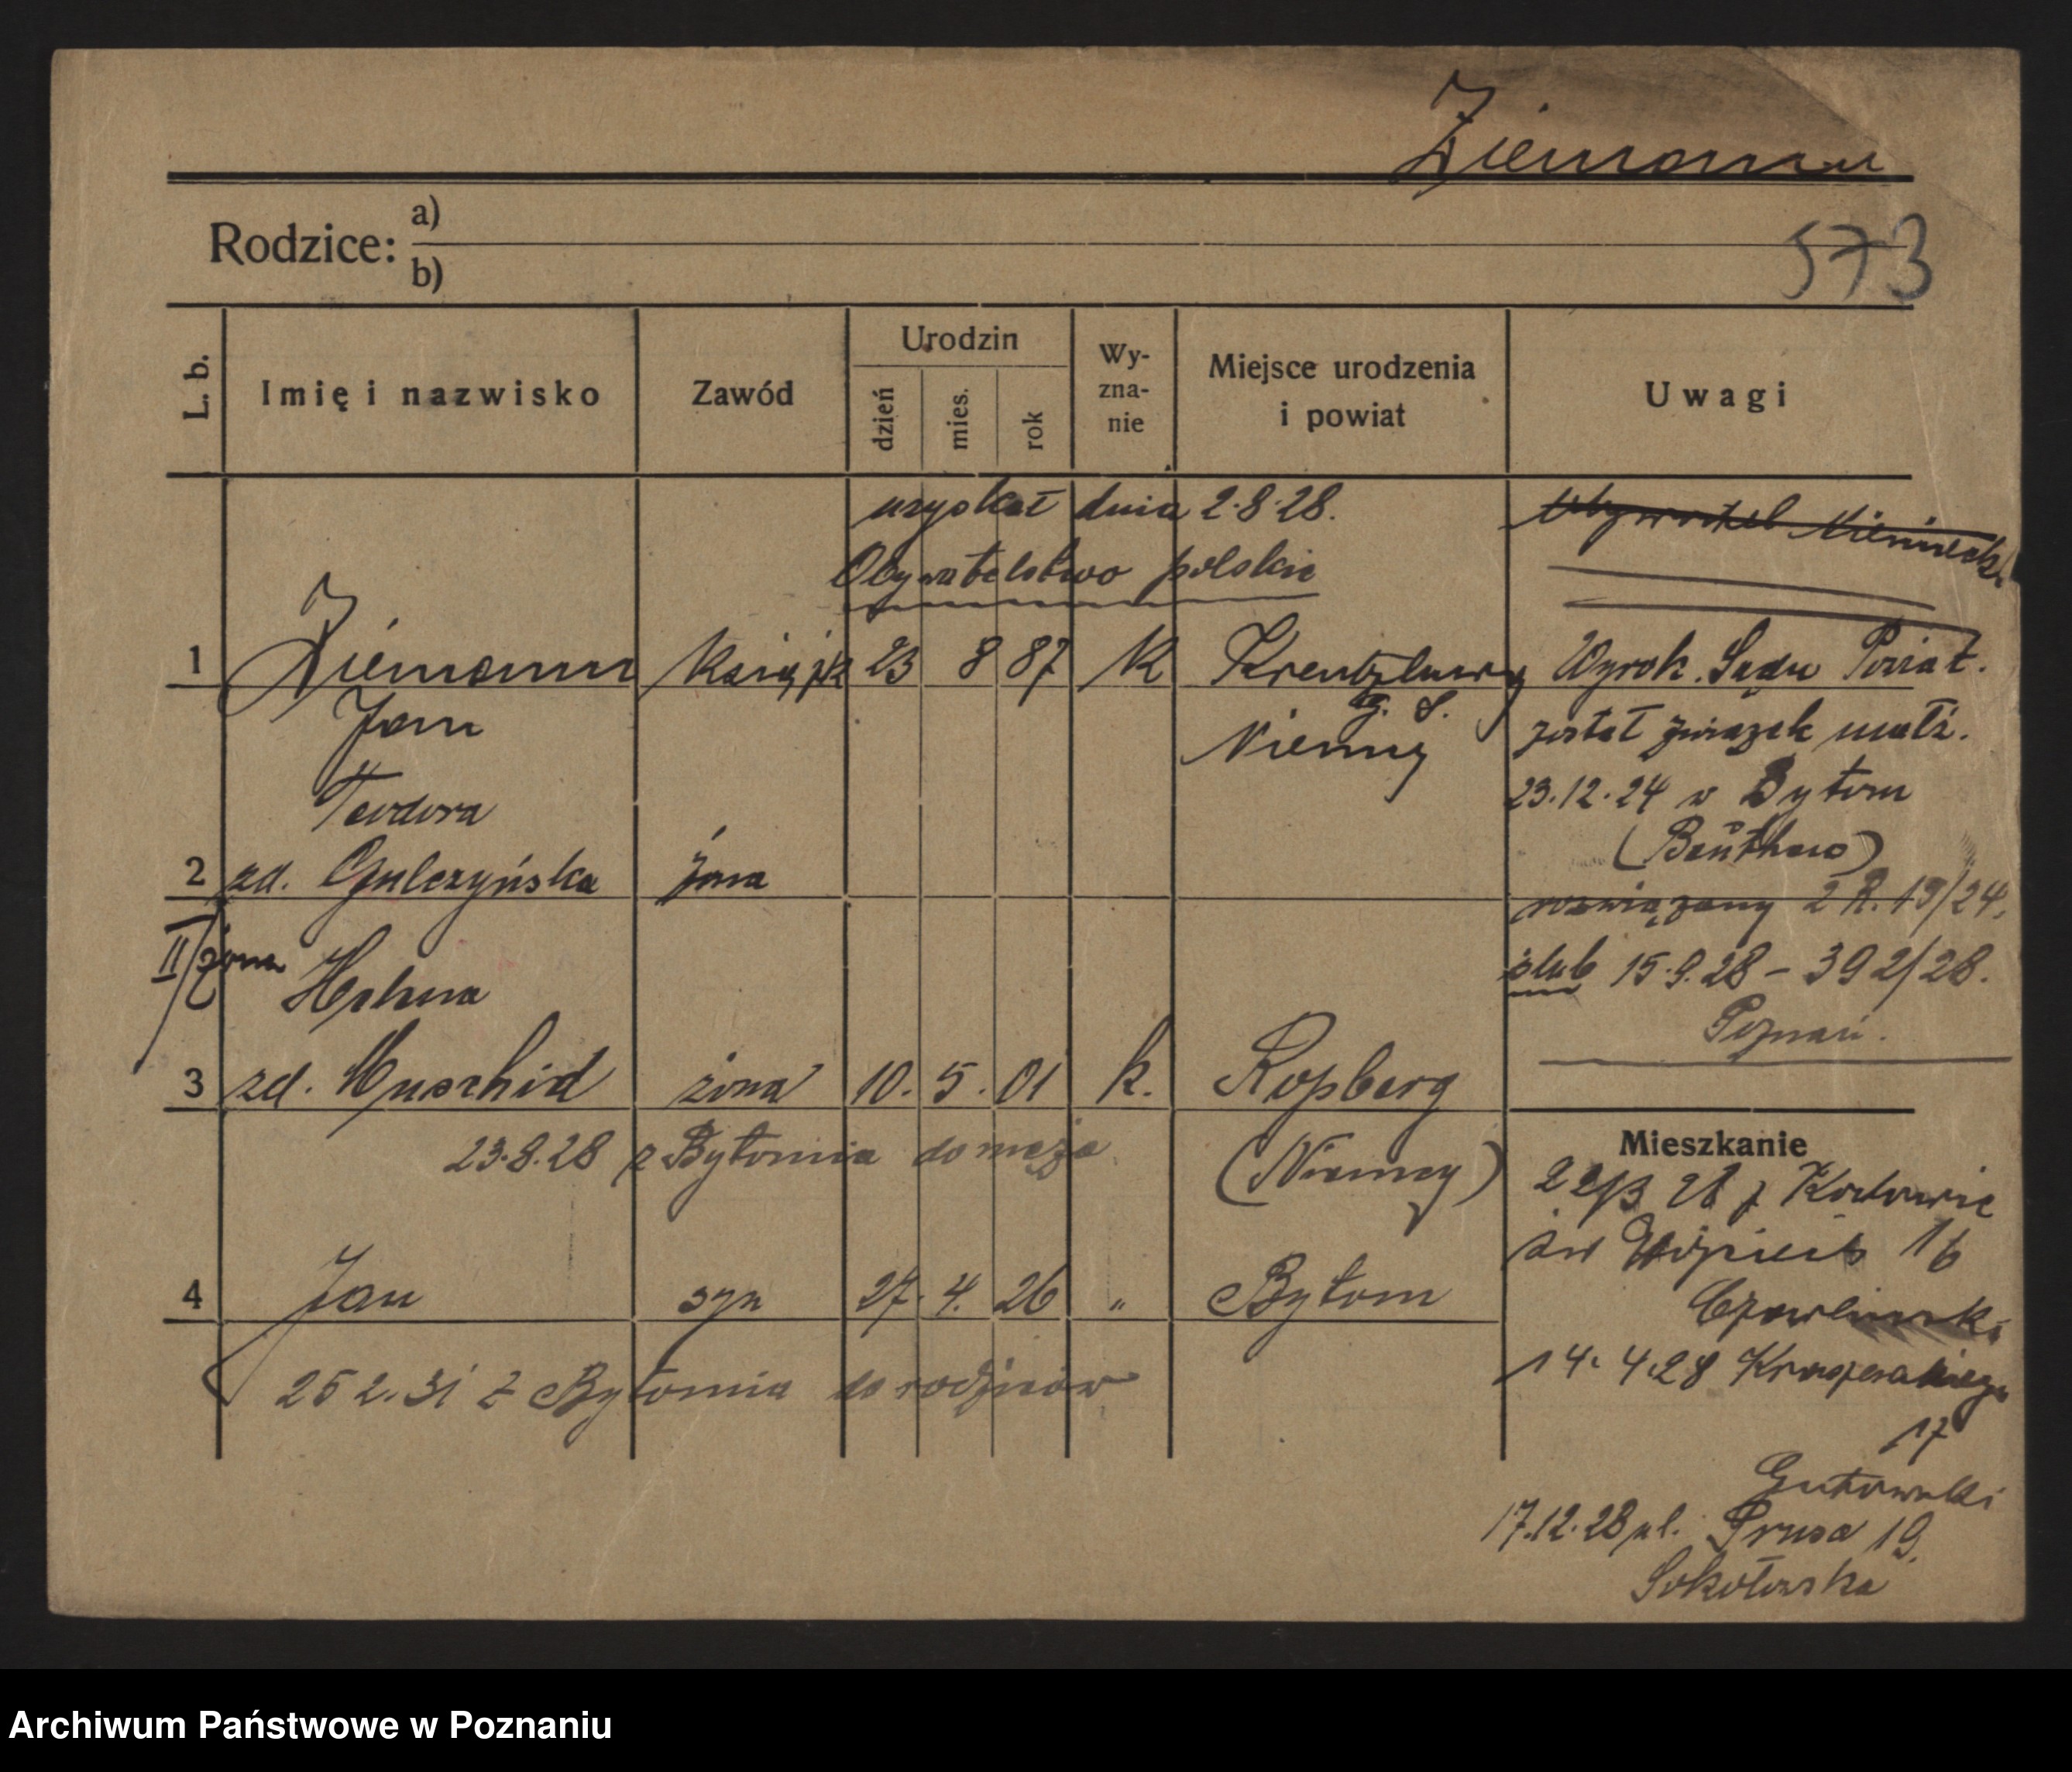 Ziemann
Rodzice: a)
b)
573
L. b.
Imię i nazwisko
Zawód
Urodzin
dzień
mies.
rok
Wy-
zna-
nie
Miejsce urodzenia
i powiat
Uwagi
uzyskał dnia 2.8.28.
Obywatelstwo polskie
Obywatel Niemiecki
1 Ziemann 23 8 87 K
Jan
G. S.
Niemcy
Wyrok. Sądu Powiat.
został związek małż.
23.12.24 w Bytom
rozwiązany 2 R. 19/24.
Teodora
2 zd. Gulczyńska żona
II/żona
Helena
ślub 15.9.28 – 392/28.
Poznań.
3 zd. żona 10. 5. 01 k. Rosberg
23.8.28 z Bytomia do męża
(Niemcy)
4 Jan syn 27. 4. 26 " Bytom
25 2. 31 z Bytomia do rodziców
Mieszkanie
św Wojciech 16
14. 4 28 Kraszewskiego
17
Gutowski
17.12.28 ul. Prusa 19.
Sokołowska
Archiwum Państwowe w Poznaniu